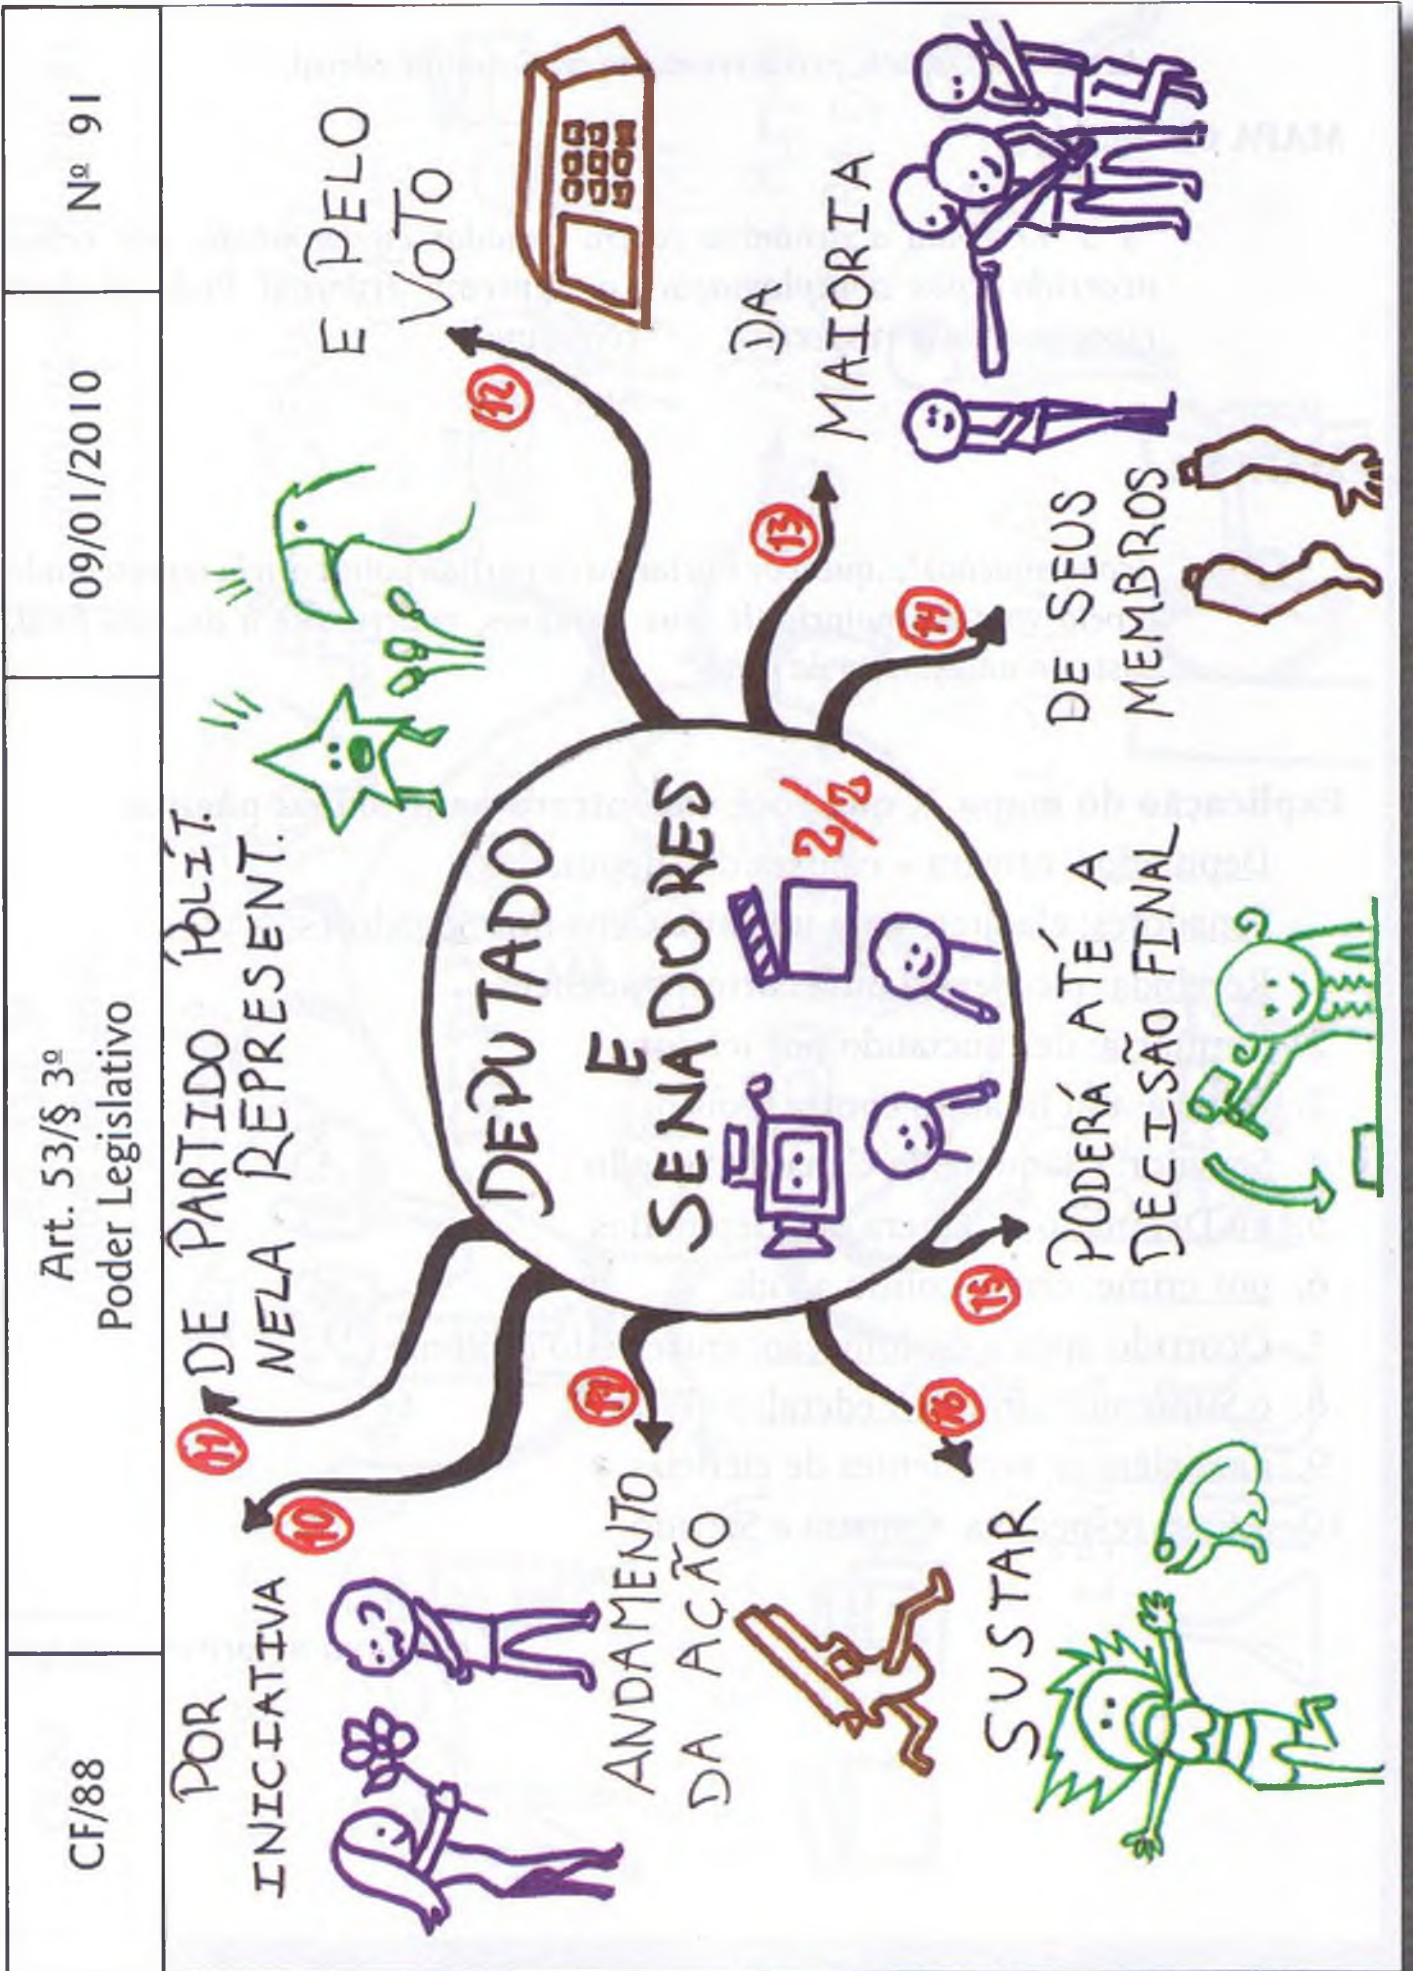 CF/88
Art. 53/§ 3º
Poder Legislativo
09/01/2010
Nº 91
DEPUTADO
E
SENADORES
2/2
10
POR
INICIATIVA
11
DE PARTIDO POLÍT.
NELA REPRESENT.
12
E PELO
VOTO
13
DA
MAIORIA
14
DE SEUS
MEMBROS
15
PODERÁ ATÉ A
DECISÃO FINAL
16
SUSTAR
17
ANDAMENTO
DA AÇÃO